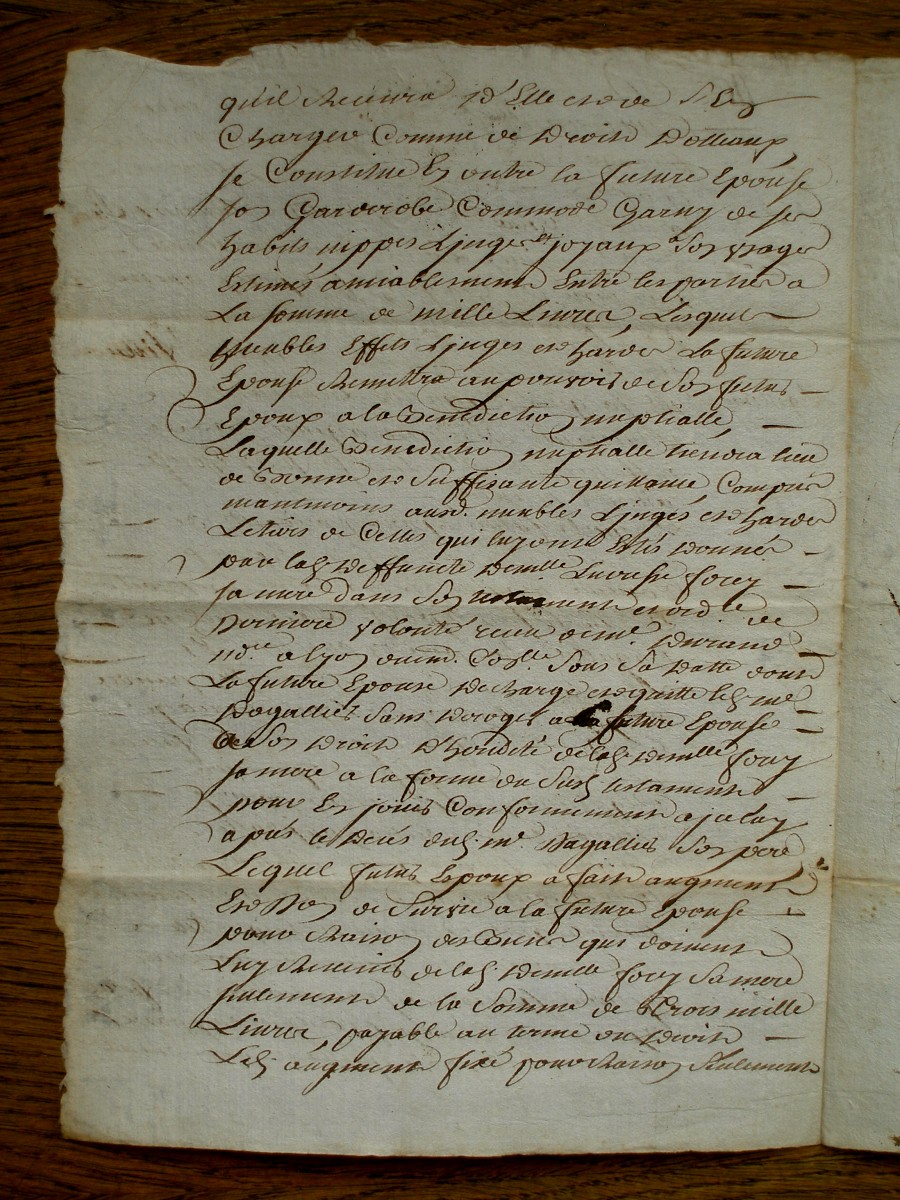 qu'il Recevra D'Elle et de s'En
Charger Comme de Droit Dotteaux,
se Constitue En outre la future Epouse
son Garderobe Commode Garny de ses
habits nippes Linges et joyaux a Son usage
Estimés amiablement Entre les parties a
La somme de mille Livres, Lesquels
Meubles Effets Linges et hardes La future
Epouse Remettra au pouvoir de Son futur
Epoux a la Benediction nuptialle,
Laquelle Benediction nuptialle tiendra lieu
de Bonne et Suffisante quittance, Compris
neantmoins ausd. meubles Linges et hardes
Letiers de Celles qui luy ont Estés Donnés
par lad. Deffuncte Demlle forey
sa mere Dans Son testament et ord.
de Derniere volonté reçeu de me Durand
nore a lyon Sous Sa Datte dont
La future Epouse Decharge et quitte led. me
Dagallier Sans Deroger a la future Epouse
de Son Droit D'hoirdité de lad. Demlle forey
sa mere a la forme du Susd. testament
pour En jouir Conformement a jceluy
apres le Deces dud. me. Dagallier Son pere
Lequel futur Epoux a fait augment
Et Don de Survie a la future Epouse
pour Raison des Biens qui doivent
Luy Revenir de lad. Demlle forey Sa mere
seulement de la Somme de Trois mille
Livres, payable au terme du Droit
Led. augment fixé pour Raison Seulement